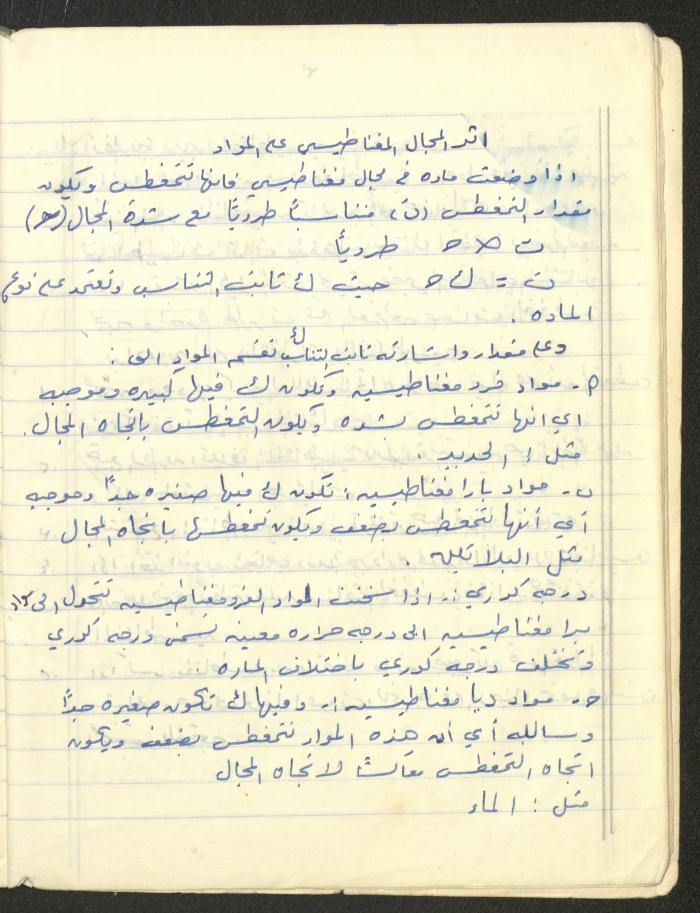 اثر المجال المغناطيسي على المواد
اذا وضعت ماده في مجال مغناطيسي فانها تتمغطس ويكون
مقدار التمغطس (ت) متناسباً طردياً مع شدة المجال (ح)
ت ∝ ح طردياً
ت = ك ح حيث ك ثابت التناسب وتعتمد على نوع
الماده .
وعلى مقدار واشارته ثابت التناسب ك تقسم المواد الى :
م- مواد فرد مغناطيسيه وتكون ك فيها كبيره وموجبه
اي انها تتمغطس بشده ويكون التمغطس باتجاه المجال .
مثل : الحديد .
ب- مواد بارا مغناطيسيه : تكون ك فيها صغيره جداً وموجبه
أي أنها تتمغطس بضعف ويكون تمغطسها باتجاه المجال
مثل البلاتين .
درجه كوري :- اذا سخنت المواد الفرومغناطيسيه تتحول الى
برا مغناطيسيه الى درجه حراره معينه يسمى درجه كوري
وتختلف درجه كوري باختلاف الماده
ح- مواد ديا مغناطيسيه :- وفيها ك تكون صغيره جداً
وسالبه أي ان هذه المواد تتمغطس بضعف ويكون
اتجاه التمغطس معاكساً لاتجاه المجال
مثل : الماء